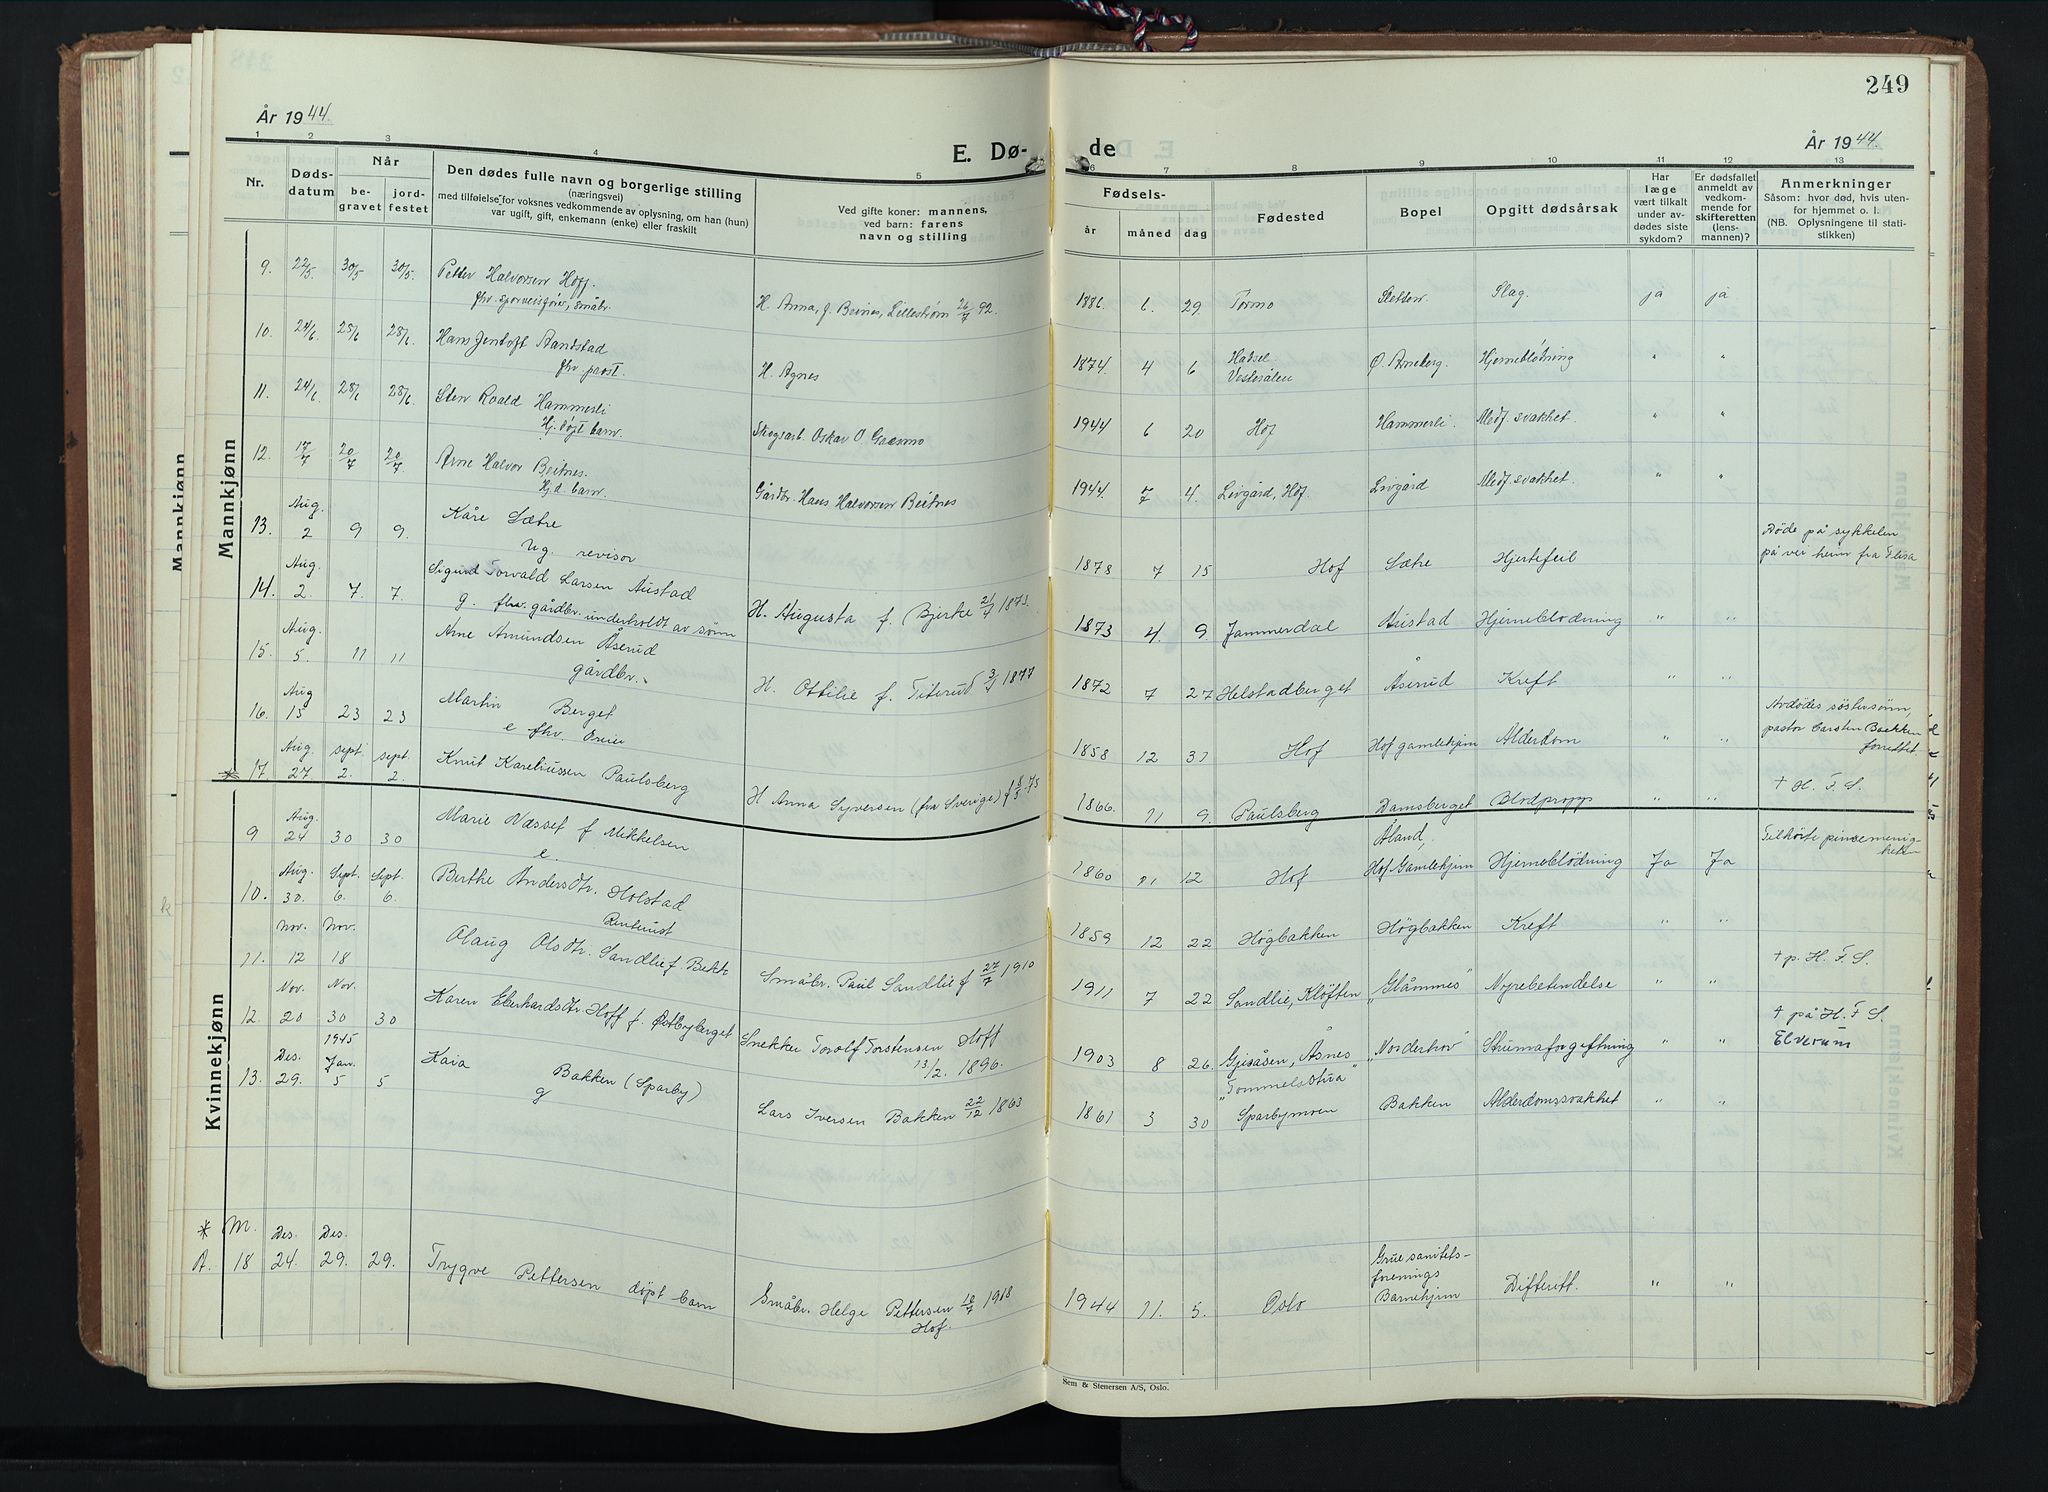 249
År 1944.
År 1944.
E. Dø-de
1 2 3 4 5 6 7 8 9 10 11 12 13
Nr.
Døds-datum
Når
be-gravet
jord-festet
Den dødes fulle navn og borgerlige stilling
(næringsvei)
med tilføielse for voksnes vedkommende av oplysning, om han (hun)
var ugift, gift, enkemann (enke) eller fraskilt
Ved gifte koner: mannens,
ved barn: farens
navn og stilling
Fødsels-
år måned dag
Fødested
Bopel
Opgitt dødsårsak
Har læge vært tilkalt under av-dødes siste sykdom?
Er dødsfallet anmeldt av vedkom-mende for skifteretten (lens-mannen)?
Anmerkninger
Såsom: hvor død, hvis uten-
for hjemmet o. l.
(NB. Oplysningene til stati-
stikken)
Mannkjønn
9. 22/5 30/5 30/5. Petter Halvorsen Hoff.
fhv. sporveisfører, småbr. H. Anna, f. Beines, Lillestrøm 26/7 92. 1886. 6. 29. Tormo Sletten. Slag. ja ja
10. 24/6 28/6 28/6. Hans Jentoft Aandstad
fhv prost. H. Agnes 1874. 4 6 Hadsel. Vesterålen Ø. Arneberg. Hjerneblødning " "
11. 24/6 28/6 28/6. Sten Roald Hammerli
Hj. døpt barn. Skogsarb. Oskar O Grasmo 1944 6 20 Hof Hammerli. Medf. svakhet. " "
12. 17/7 20/7 20/7 Arne Halvor Beitnes.
Hj. d. barn. Gårdbr. Hans Halvorsen Beitnes 1944. 7 4. Livgård, Hof. Livgård Medf. svakhet. " "
13. Aug. 2 9 9. Kåre Sætre
Ug. revisor 1878 7 15 Hof Sætre Hjertefeil
Døde på sykkelen
på vei heim fra Flisa
14. Aug. 2. 7. 7. Sigurd Torvald Larsen Austad
g. fhv. gårdbr. underholdt av sønn H. Augusta f. Bjerke 21/4 1873. 1873 4. 9. Jammerdal Austad Hjerneblødning " "
15. Aug. 5. 11 11 Arne Amundsen Åserud
gårdbr. H. Ottilie f. Titerud 3/4 1877 1872 7 27 Helstadberget Åserud Kreft " "
16. Aug 15 23 23 Martin Berget
e fhv. 1858 12 Hof Hof gamlehjem Alderdom " "
Avdødes søstersønn,
pastor Carsten Bakken
forrettet.
* 17 Aug. 27. sept 2. sept. 2. Knut Kareliussen Paulsberg H Anna Syversen (fra Sverige) 1866. 11 9. Paulsberg Damsberget Blodpropp " "
† H. F. S.
Kvinnekjønn
9 Aug. 24 30 30 Marie Næsset f. Mikkelsen
e. 1860 11 12 Hof Åland, Hof Gamlehjem Hjerneblødning Ja Ja
Tilhørte pinsemenig-
heten
10. Aug. 30. Sept. 6. Sept. 6. Berthe Andersdtr. Holstad
Rentenist 1859 12 22 Høgbakken Høgbakken Kreft " "
11. Nov. 12 Nov. 18 Olaug Olsdtr. Sandlie f. Bekk Småbr. Paul Sandlie f 27/7 1910 1911 7 22 Sandlie, Kløften "Glåmnes" Nyrebetendelse " "
† p. H. F. S.
12. Nov. 20 Nov. 30 30 Karen Eberhardsdtr. Hoff f. Østbyberget Snekker Torolf Torstensen Hoff
13/2. 1896. 1903 8 26. Gjesåsen, Åsnes "Norderhov" Strumaforgiftning " "
† på H. F S.
Elverum
13. Des. 29. 1945 Jan. 5 5 Kaia Bakken (Sparby)
g Lars Iversen Bakken 22/12 1863 1861 3 30 "Tommelsstua" Sparbymoen Bakken Alderdomssvakhet " "
* M.
A. 18 Des. 24. Des. 29. 29. Trygve Pettersen døpt barn Småbr. Helge Pettersen 10/7 1918
Hof. 1944 11. 5. Oslo Grue sanitets-
forenings
Barnehjem Difteritt. " "
Sem & Stenersen A/S, Oslo.
Mannkjønn